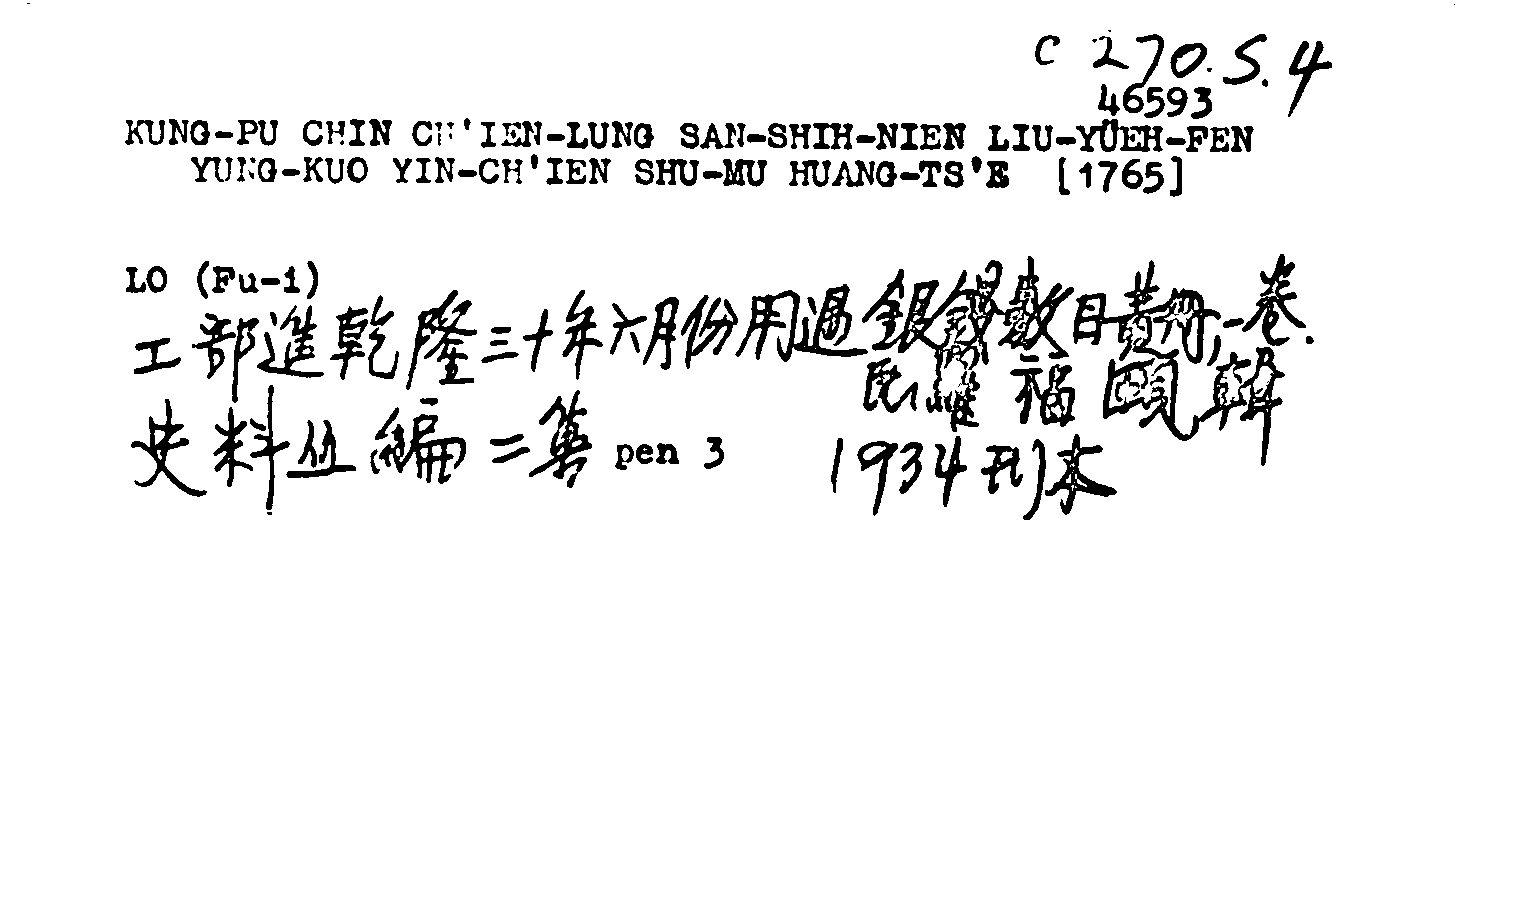 C 270.S.4
46593
KUNG-PU CHIN CH'IEN-LUNG SAN-SHIH-NIEN LIU-YÜEH-FEN
YUNG-KUO YIN-CH'IEN SHU-MU HUANG-TS'E [1765]
LO (Fu-i)
工部進乾隆三十年六月份用過銀錢數目黃冊,一卷.
民羅福頤輯
史料丛編二集 pen 3 1934刊本